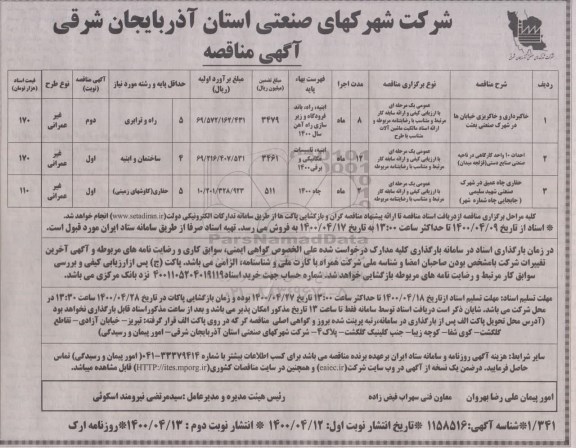 شرکت شهرکهای صنعتی استان آذربایجان شرقی
آگهی مناقصه
ردیف | شرح مناقصه | نوع برگزاری مناقصه | مدت اجرا | فهرست بهاء پایه | مبلغ تضمین (میلیون ریال) | مبلغ برآورد اولیه (ریال) | حداقل پایه و رشته مورد نیاز | آگهی مناقصه (نوبت) | نوع طرح | قیمت اسناد (هزار تومان)
۱ | خاکبرداری و خاکریزی خیابان ها در شهرک صنعتی بعثت | عمومی یک مرحله ای با ارزیابی کیفی و ارائه سابقه کار مرتبط و متناسب با رضایتنامه مربوطه و ارائه اسناد مالکیت ماشین آلات متناسب با طرح | ۸ ماه | ابنیه، راه، باند فرودگاه و زیر سازی راه آهن سال ۱۴۰۰ | ۳۴۷۹ | ۶۹/۵۷۲/۱۶۲/۴۳۱ | ۵ راه و ترابری | دوم | غیر عمرانی | ۱۷۰
۲ | احداث ۱۰ واحد کارگاهی در ناحیه صنعتی صنایع دستی (قراجه میدان) | عمومی یک مرحله ای با ارزیابی کیفی و ارائه سابقه کار مرتبط و متناسب با رضایتنامه مربوطه | ۱۲ ماه | ابنیه، تاسیسات مکانیکی و برقی ۱۴۰۰ | ۳۴۶۱ | ۶۹/۲۱۶/۴۰۷/۵۳۱ | ۴ ساختمان و ابنیه | اول | غیر عمرانی | ۱۷۰
۳ | حفاری چاه عمیق در شهرک صنعتی شهید سلیمی (جابجایی چاه شماره شهر) | عمومی یک مرحله ای با ارزیابی کیفی و ارائه سابقه کار مرتبط و متناسب با رضایتنامه مربوطه | ۴ ماه | چاه ۱۴۰۰ | ۵۱۱ | ۱۰/۲۰۱/۳۲۸/۹۲۳ | ۵ حفاری (کاوشهای زمینی) | اول | غیر عمرانی | ۱۱۰
کلیه مراحل برگزاری مناقصه ازدریافت اسناد مناقصه تا ارائه پیشنهاد مناقصه گران و بازگشایی پاکت ها از طریق سامانه تدارکات الکترونیکی دولت (www.setadiran.ir) انجام خواهد شد.
* اسناد از تاریخ ۱۴۰۰/۰۴/۰۹ تا حداکثر ساعت ۱۳:۰۰ به تاریخ ۱۴۰۰/۰۴/۱۷ به فروش می رسد. تهیه اسناد صرفا از طریق سامانه ستاد ایران مورد قبول است.
در زمان بارگذاری اسناد در سامانه بارگذاری کلیه مدارک درخواست شده علی الخصوص گواهی ایمنی، سوابق کاری و رضایت نامه های مربوطه و آگهی آخرین
تغییرات شرکت بامشخص بودن صاحبان امضا و شناسه ملی شرکت همراه با کارت ملی و شناسنامه، الزامی می باشد. پاکت (ج) پس ازارزیابی کیفی و بررسی
سوابق کار مرتبط و رضایت نامه های مربوطه بازگشایی خواهد شد. شماره حساب جهت خرید اسناد ۴۰۰۱۱۰۵۲۰۴۰۱۹۱۱۹ نزد بانک مرکزی می باشد.
مهلت تسلیم اسناد: مهلت تسلیم اسناد ازتاریخ ۱۴۰۰/۰۴/۱۸ تا حداکثر ساعت ۱۳:۰۰ تاریخ ۱۴۰۰/۰۴/۲۷ بوده و زمان بازگشایی پاکات در تاریخ ۱۴۰۰/۰۴/۲۸ ساعت ۱۳:۳۰ در
محل شرکت می باشد. شایان ذکر است دریافت اسناد توسط سامانه فقط تا ساعت ۱۳ تاریخ مذکور امکان پذیر می باشد و بعد از ساعت مذکوراسناد قابل بارگذاری نخواهد بود
(آدرس محل تحویل پاکت الف پس از بارگذاری در سامانه، رتبه پرینت شده بروز و گواهی اصلی مناقصه گر که در روی پاکت الف قرار گرفته: تبریز – خیابان آزادی– تقاطع
گلگشت– کوی شفا– کوچه زیبا– جنب کلینیک گلگشت– پلاک۴– شرکت شهرکهای صنعتی استان آذربایجان شرقی– امور پیمان و رسیدگی)
سایر شرایط: هزینه آگهی روزنامه و سامانه ستاد ایران برعهده برنده مناقصه می باشد برای کسب اطلاعات بیشتر با شماره ۳۳۳۷۹۴۱۴-۰۴۱ (امور پیمان و رسیدگی) تماس
حاصل فرمایید. درضمن یک نسخه از آگهی در وب سایت شرکت (eaiec.ir) و همچنین در سایت مناقصات کشوری (HTTP://iets.mporg.ir) قابل مشاهده میباشد.
امور پیمان علی رضا بهروان
معاون فنی سهراب فیض زاده
رئیس هیئت مدیره و مدیرعامل :سیدمرتضی نیرومند اسکوئی
۱/۳۴۱*شناسه آگهی: ۱۱۵۸۵۱۶* تاریخ انتشار نوبت اول: ۱۴۰۰/۰۴/۱۲ * انتشار نوبت دوم : ۱۴۰۰/۰۴/۱۳*روزنامه ارک
ParsNamadData